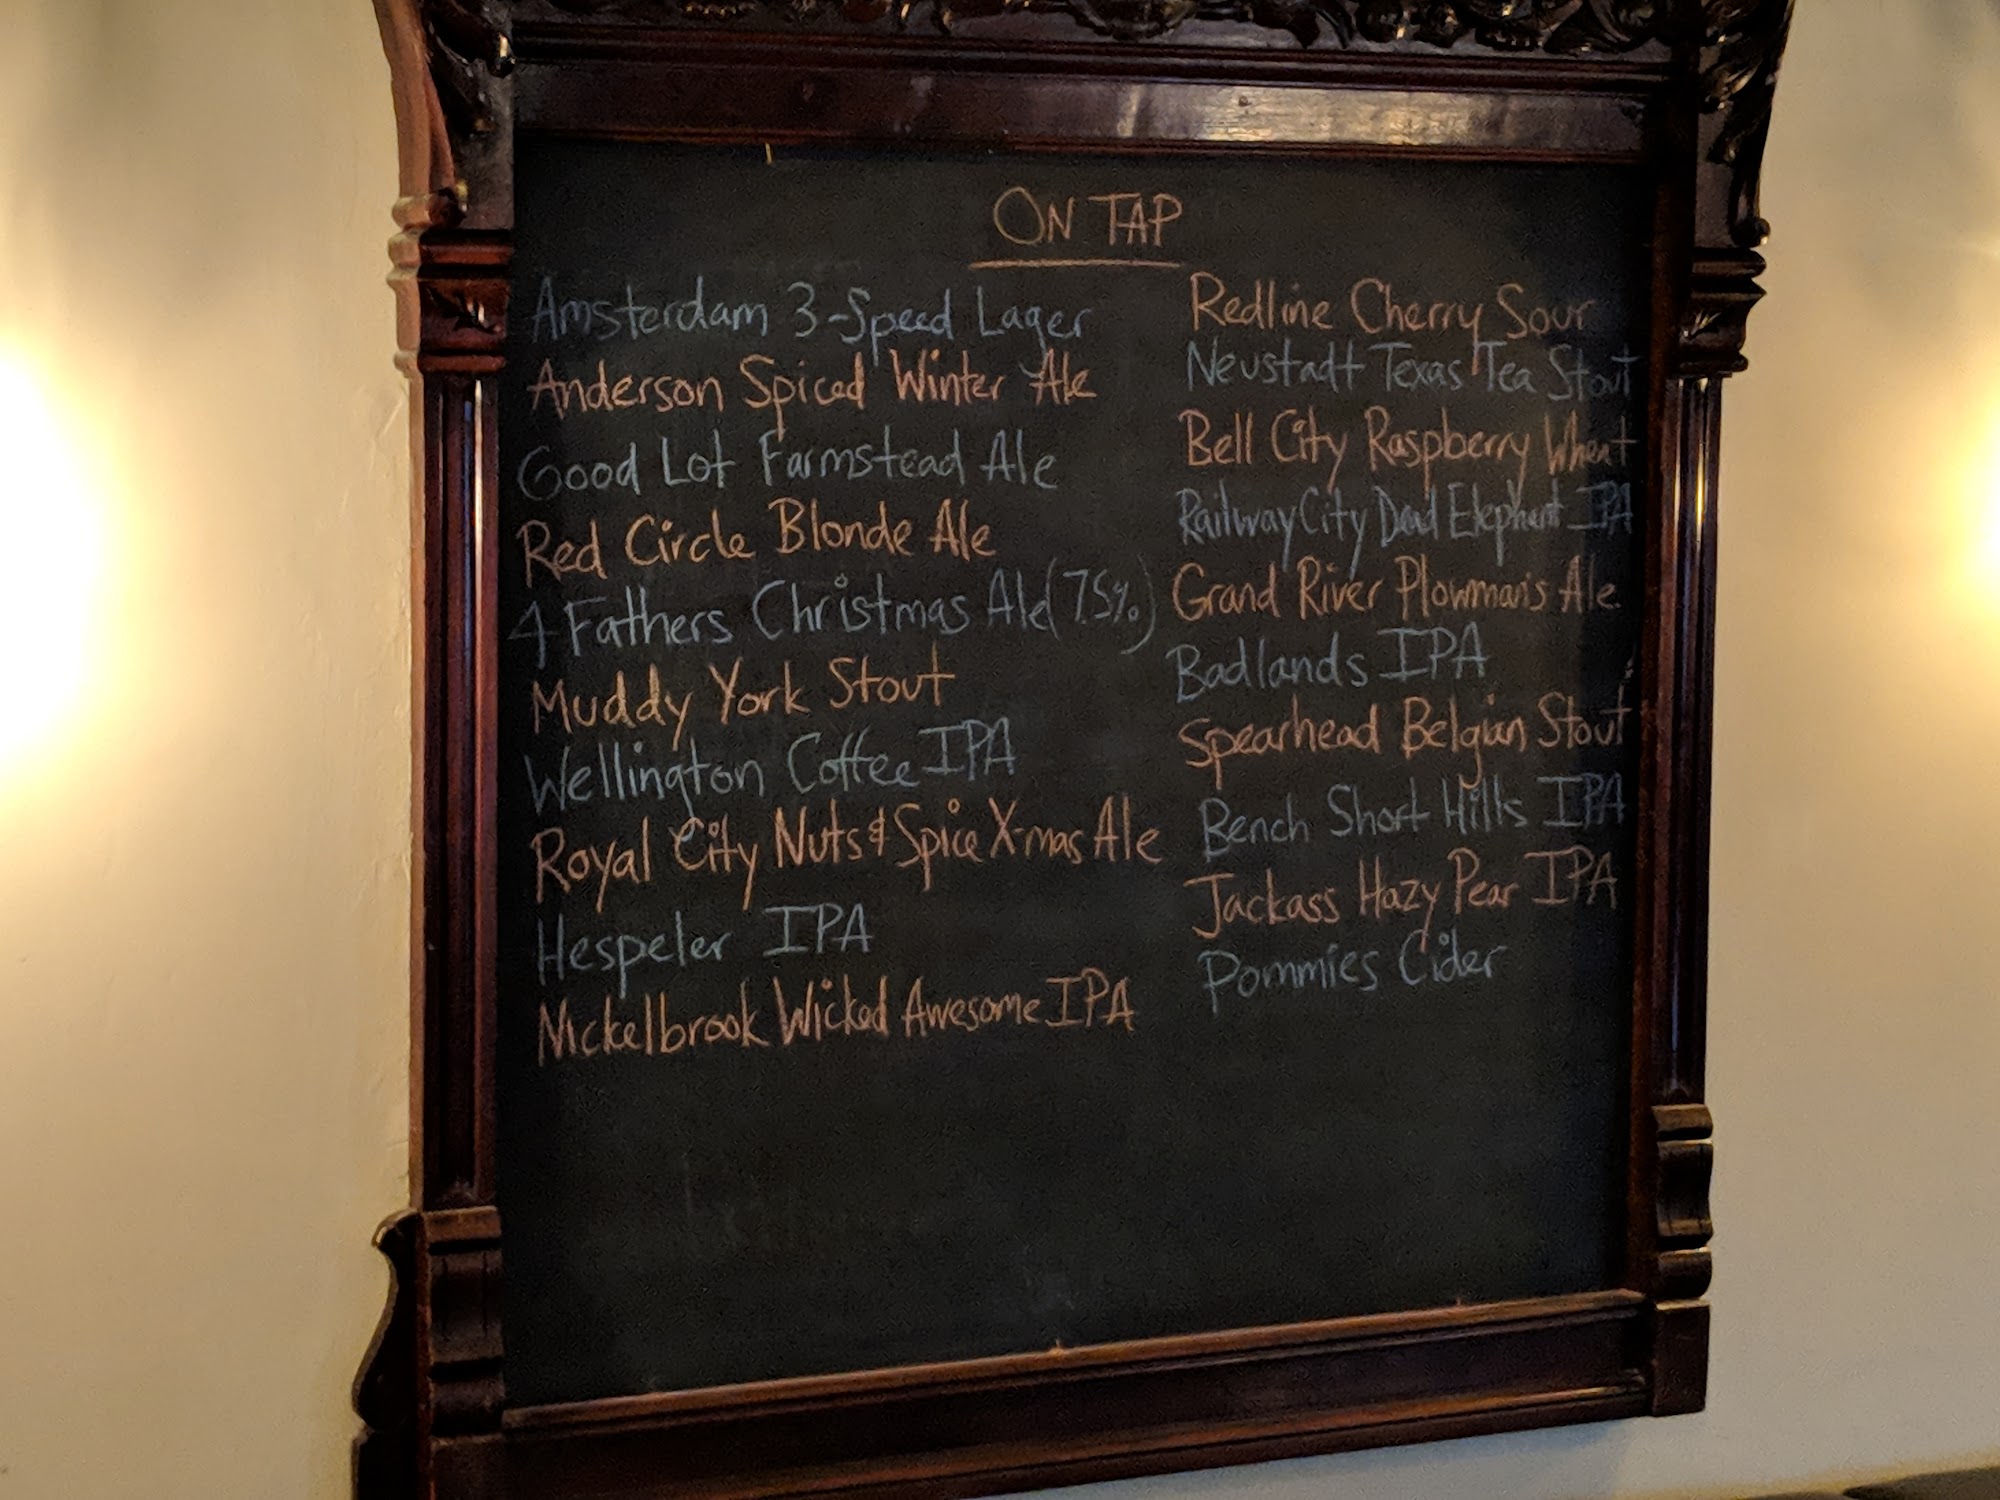 ON TAP
Amsterdam 3-Speed Lager
Anderson Spiced Winter Ale
Good Lot Farmstead Ale
Red Circle Blonde Ale
4 Fathers Christmas Ale (7.5%)
Muddy York Stout
Wellington Coffee IPA
Royal City Nuts & Spice X-mas Ale
Hespeler IPA
Nickelbrook Wicked Awesome IPA
Redline Cherry Sour
Neustadt Texas Tea Stout
Bell City Raspberry Wheat
Railway City Dead Elephant IPA
Grand River Plowman's Ale
Badlands IPA
Spearhead Belgian Stout
Bench Short Hills IPA
Jackass Hazy Pear IPA
Pommies Cider